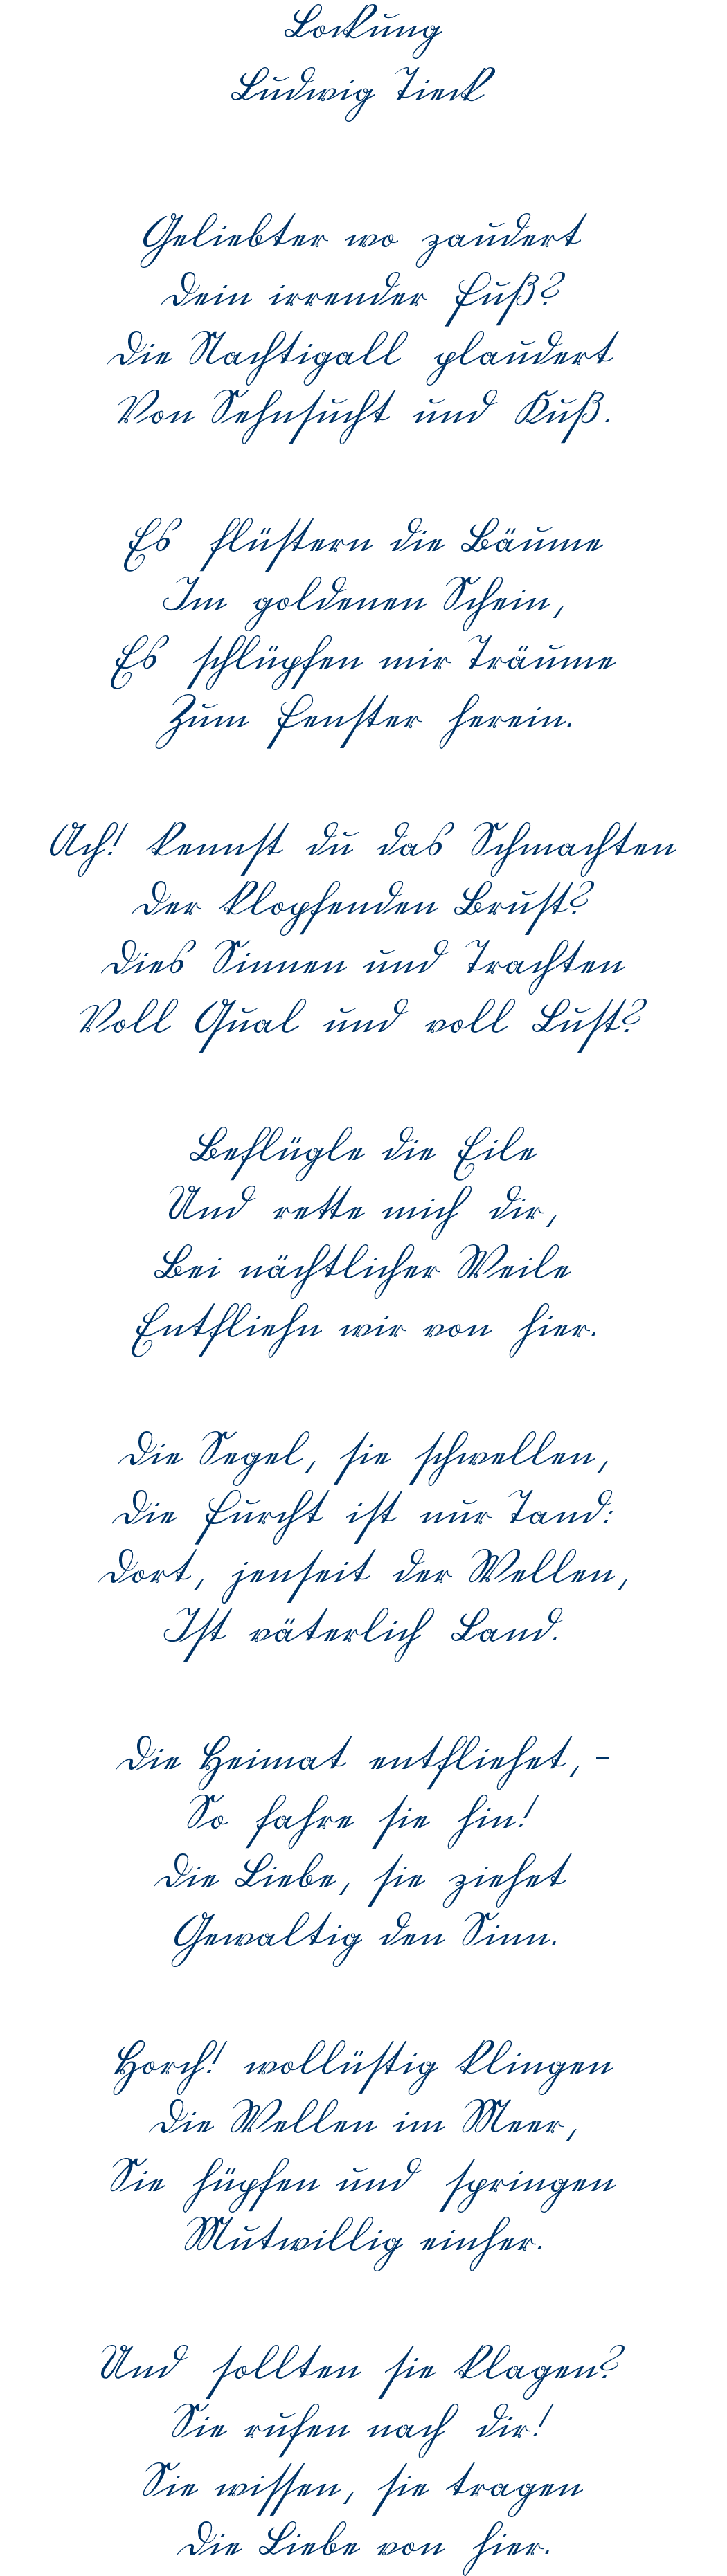 Lockung
Ludwig Tieck
Geliebter wo zaudert
Dein irrender Fuß?
Die Nachtigall plaudert
Von Sehnsucht und Kuß.
Es flüstern die Bäume
Im goldenen Schein,
Es schlüpfen mir Träume
Zum Fenster herein.
Ach! kennst du das Schmachten
Der klopfenden Brust?
Dies Sinnen und Trachten
Voll Qual und voll Lust?
Beflügle die Eile
Und rette mich dir,
Bei nächtlicher Weile
Entfliehn wir von hier.
Die Segel, sie schwellen,
Die Furcht ist nur Tand:
Dort, jenseit der Wellen,
Ist väterlich Land.
Die Heimat entfliehet, –
So fahre sie hin!
Die Liebe, sie ziehet
Gewaltig den Sinn.
Horch! wollüstig klingen
Die Wellen im Meer,
Sie hüpfen und springen
Mutwillig einher.
Und sollten sie klagen?
Sie rufen nach dir!
Sie wissen, sie tragen
Die Liebe von hier.